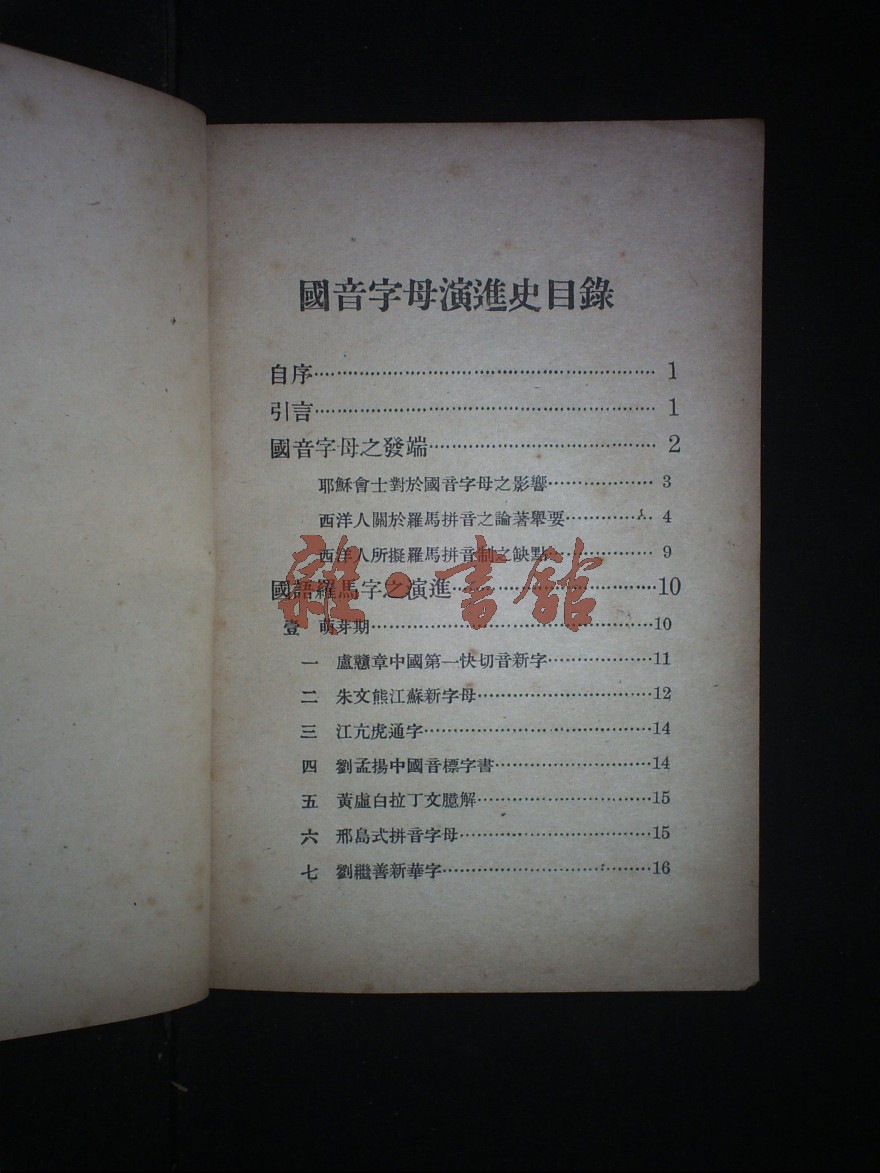 國音字母演進史目錄
自序………………………………………… 1
引言………………………………………… 1
國音字母之發端………………………… 2
耶穌會士對於國音字母之影響……………… 3
西洋人關於羅馬拼音之論著舉要………… 4
西洋人所擬羅馬拼音制之缺點…………… 9
國語羅馬字之演進………………………10
壹 萌芽期…………………………………10
一 盧戇章中國第一快切音新字……………11
二 朱文熊江蘇新字母……………………12
三 江亢虎通字……………………………14
四 劉孟揚中國音標字書…………………14
五 黃虛白拉丁文臆解……………………15
六 邢島式拼音字母………………………15
七 劉繼善新華字…………………………16
雜·書館